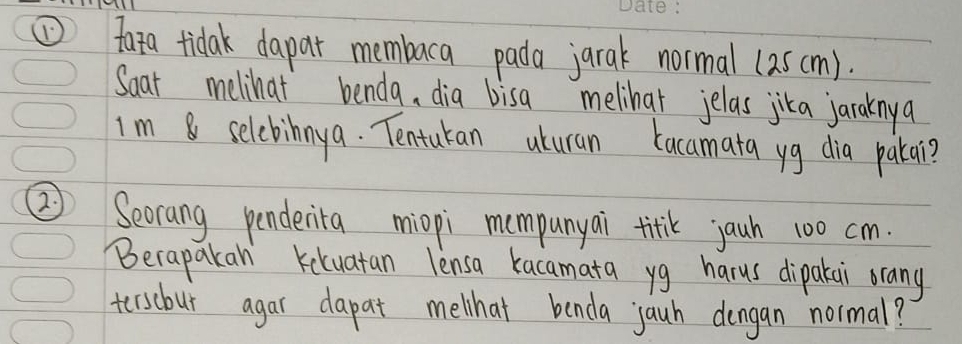 Date :
① Faza tidak dapat membaca pada jarak normal (25 cm).
Saat melihat benda, dia bisa melihat jelas jika jaraknya
1 m & selebihnya. Tentukan ukuran kacamata yg dia pakai?
② Seorang penderita miopi mempunyai titik jauh 100 cm.
Berapakah kekuatan lensa kacamata yg harus dipakai orang
tersebut agar dapat melihat benda jauh dengan normal?